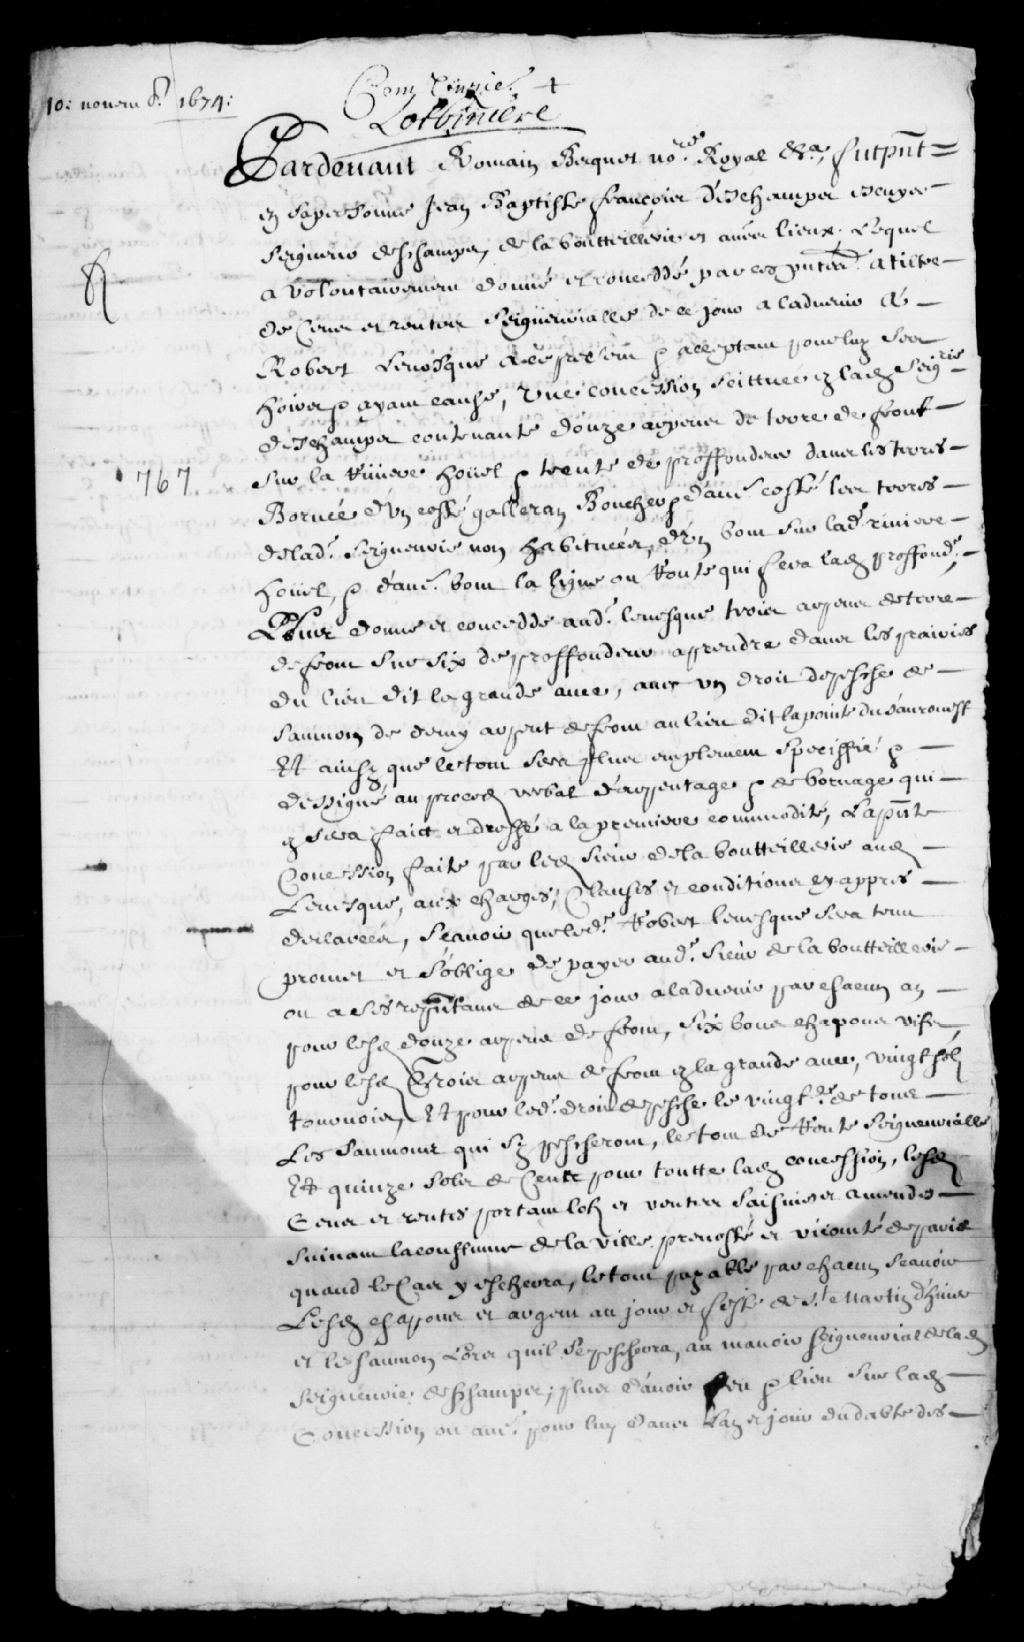 10: novemb.^e 1674:
Lotbiniere
Pardevant Romain Becquet no^re Royal &^a, fut pn̄t =
en sa personne Jean Baptiste françois deschamps escuyer
Seigneur deschamps, de la boutteillerie et au^es lieux. Lequel
a volontairement donné et conceddé par ces pntes a tiltre
de Cens et rentes Seigneurialles de ce jour a ladvenir A
Robert Levesque a ce present & acceptant pour luy ses
hoirs & ayant cause, Une concession scittuée en lad Seig^rie
deschamps contenante douze arpens de terre de front
767
Sur la Riviere hoüel & trente de proffondeur dans les terres
Bornée d'un costé galleran Boucher & d'au^e costé les terres
de lad^e. Seigneurie non habituées, d'un bout sur lad^e riviere
hoüel, & d'au^e. bout la ligne ou Route qui fera lad proffond^r.
Plus donne et concedde aud^t. levesque trois arpens de terre
de front sur six de proffondeur a prendre dans les prairies
du lieu dit la grande ance, avec un droit de pesche de
saumon de demy arpent de front au lieu dit la pointe du
Et ainsy que le tout sera plus emplement speciffié &
dessigné au procés verbal d'arpentage & de bornage qui
en sera faict et dressé a la premiere commodité, La pn̄te
Concession faite par led Sieur de la boutteillerie aud
Levesque, aux charges, Clauses et conditions cy appres
declarées, Scavoir que led^t. Robert levesque sera tenu
promet et s'oblige de payer aud^t. Sieur de la boutteillerie
ou a ses repn̄tans de ce jour a ladvenir par chacun an
pour lesd douze arpens de front, six bons chapons vifs,
pour lesd Trois arpens de front en la grande ance, vingt sols
tournois, Et pour led^t. droit de pesche le vingt^e. de tous
Les saumons qui s'y pescheront, le tout de Rente Seigneurialle
Et quinze sols de Cens pour toutte lad concession, lesd
Cens et rentes portant lods et ventes saisines et amendes
suivant la coustume de la ville prevosté et vicomté de paris
quand le Cas y escherra, le tout payable par chacun Scavoir
Lesd chapons et argent au jour et feste de S^t Martin d'hiver
et le saumon Lors quil se peschera, au manoir seigneurial de lad
Seigneurie deschamps; plus d'avoir feu & lieu sur lad
Concession ou au^e. pour luy dans Lan et jour du dabte des